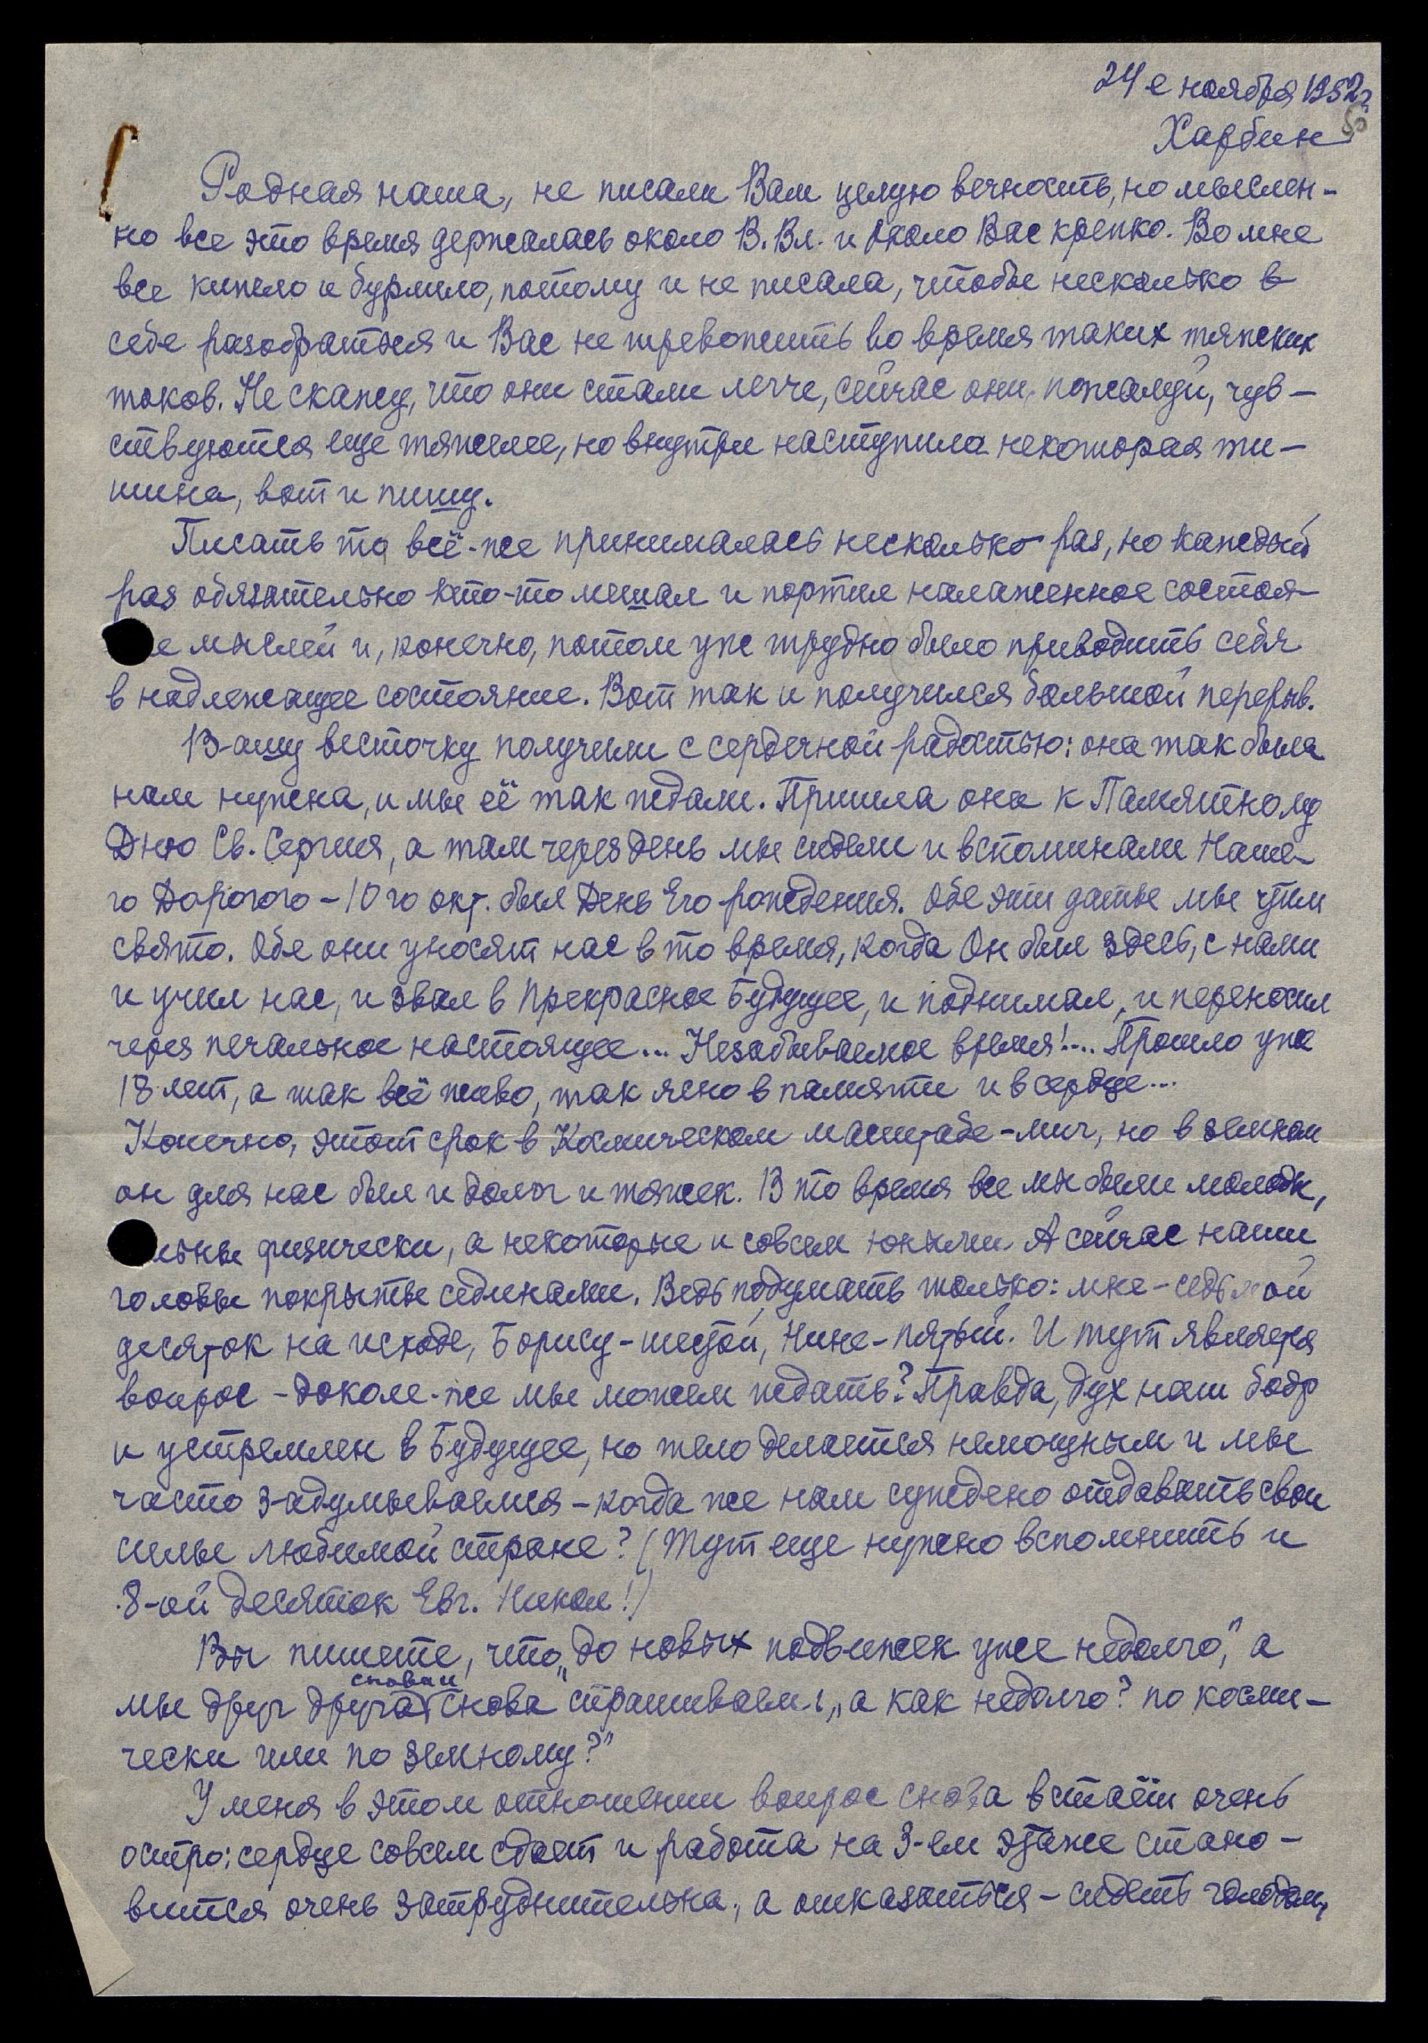 24 е ноября 1952 г.
Харбин
Родная наша, не писали Вам целую вечность, но мыслен-
но все это время держалась около В. Вл. и около Вас крепко. Во мне
все кипело и бурлило, потому и не писала, чтобы несколько в
себе разобраться и Вас не тревожить во время таких тяжких
токов. Не скажу, что они стали легче, сейчас они, пожалуй, чув-
ствуются еще тяжелее, но внутри наступила некоторая ти-
шина, вот и пишу.
Писать то всё-же принималась несколько раз, но каждый
раз обязательно кто-то мешал и портил налаженное состоя-
е мыслей и, конечно, потом уже трудно было приводить себя
в надлежащее состояние. Вот так и получился большой перерыв.
Вашу весточку получили с сердечной радостью: она так была
нам нужна, и мы её так ждали. Пришла она к Памятному
Дню Св. Сергия, а там через день мы сидели и вспоминали Наше-
го Дорогого – 10 го окт. был День Его рождения. Обе эти даты мы чтим
свято. Обе они уносят нас в то время, когда Он был здесь, с нами
и учил нас, и звал в Прекрасное Будущее, и поднимал, и переносил
через печальное настоящее... Незабываемое время!... Прошло уже
18 лет, а так всё живо, так ясно в памяти и в сердце...
Конечно, этот срок в Космическом масштабе – миг, но в земном
он для нас был и долог и тяжек. В то время все мы были молоды,
льны физически, а некоторые и совсем юными. А сейчас наши
головы покрыты сединами. Ведь подумать только: мне – седьмой
десяток на исходе, Борису – шестой, Нине – пятый. И тут является
вопрос – доколе-же мы можем ждать? Правда, дух наш бодр
и устремлен в Будущее, но тело делается немощным и мы
часто задумываемся – когда же нам суждено отдавать свои
силы любимой стране? (Тут еще нужно вспомнить и
8-ой десяток Евг. Никол!)
Вы пишете, что „до новых подвижек уже недолго", а
мы друг друга снова и снова спрашиваем: „а как недолго? по косми-
чески или по земному?"
У меня в этом отношении вопрос снова встаёт очень
остро: сердце совсем сдает и работа на 3-ем этаже стано-
вится очень затруднительна, а отказаться – сидеть голодом,